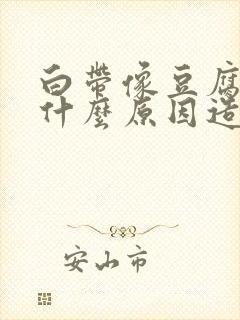 白帶像豆腐
什麼原因造
安山市